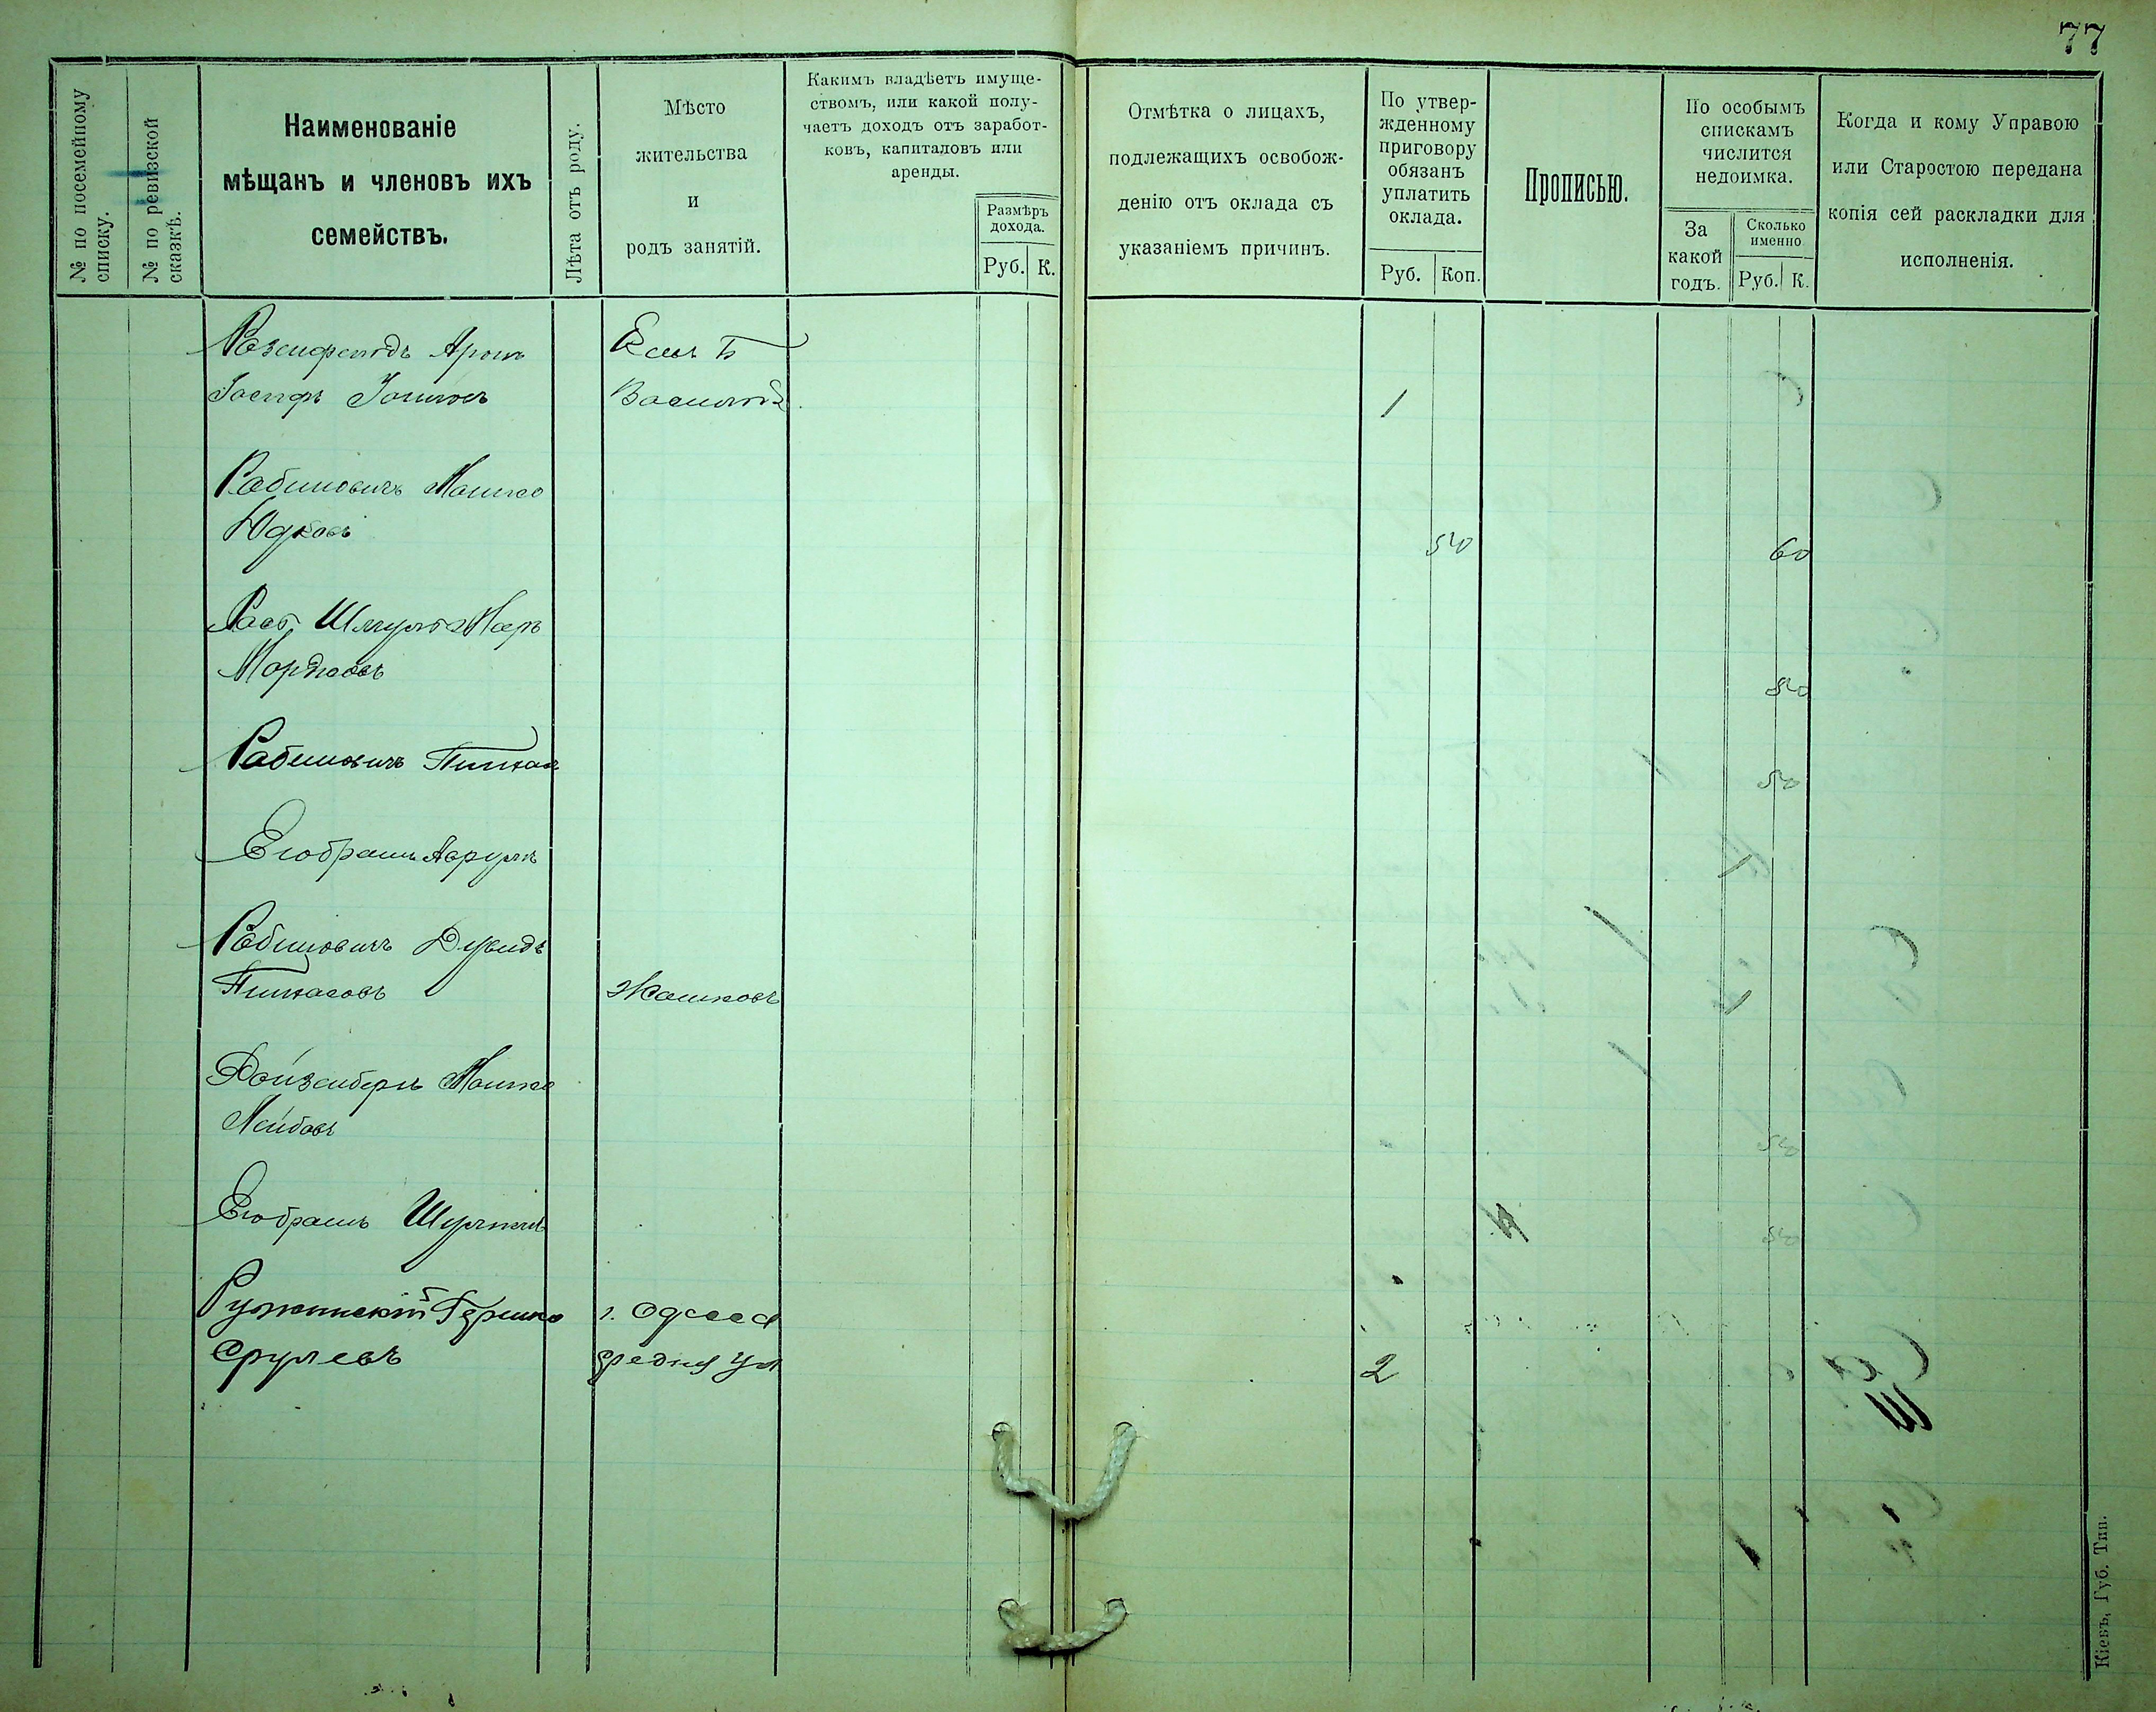 77
№ по посемейному
списку.
№ по ревизской
сказкѣ.
Наименованіе
мѣщанъ и членовъ ихъ
семействъ.
Лѣта отъ роду.
Мѣсто
жительства
и
родъ занятій.
Какимъ владѣетъ имуще-
ствомъ, или какой полу-
чаетъ доходъ отъ заработ-
ковъ, капиталовъ или
аренды.
Размѣръ
дохода.
Руб. К.
Отмѣтка о лицахъ,
подлежащихъ освобож-
денію отъ оклада съ
указаніемъ причинъ.
По утвер-
жденному
приговору
обязанъ
уплатить
оклада.
Руб. Коп.
Прописью.
По особымъ
спискамъ
числится
недоимка.
За
какой
годъ.
Сколько
именно
Руб. К.
Когда и кому Управою
или Старостою передана
копія сей раскладки для
исполненія.
Розенфельдъ Аронъ
Іосифъ 1
Рабиновичъ Мошко
Юдковъ 50 60
Шмуль
Мордковъ 50
Рабиновичъ Пинхас 50
1
Рабиновичъ Дувидъ
Пинхасовъ Жашковъ 1
Ройзенбергъ Мошко
Лейбовъ 50
50
Ружинскій Гершко г. Одесса
Срулевъ 2
Кіевъ, Губ. Тип.